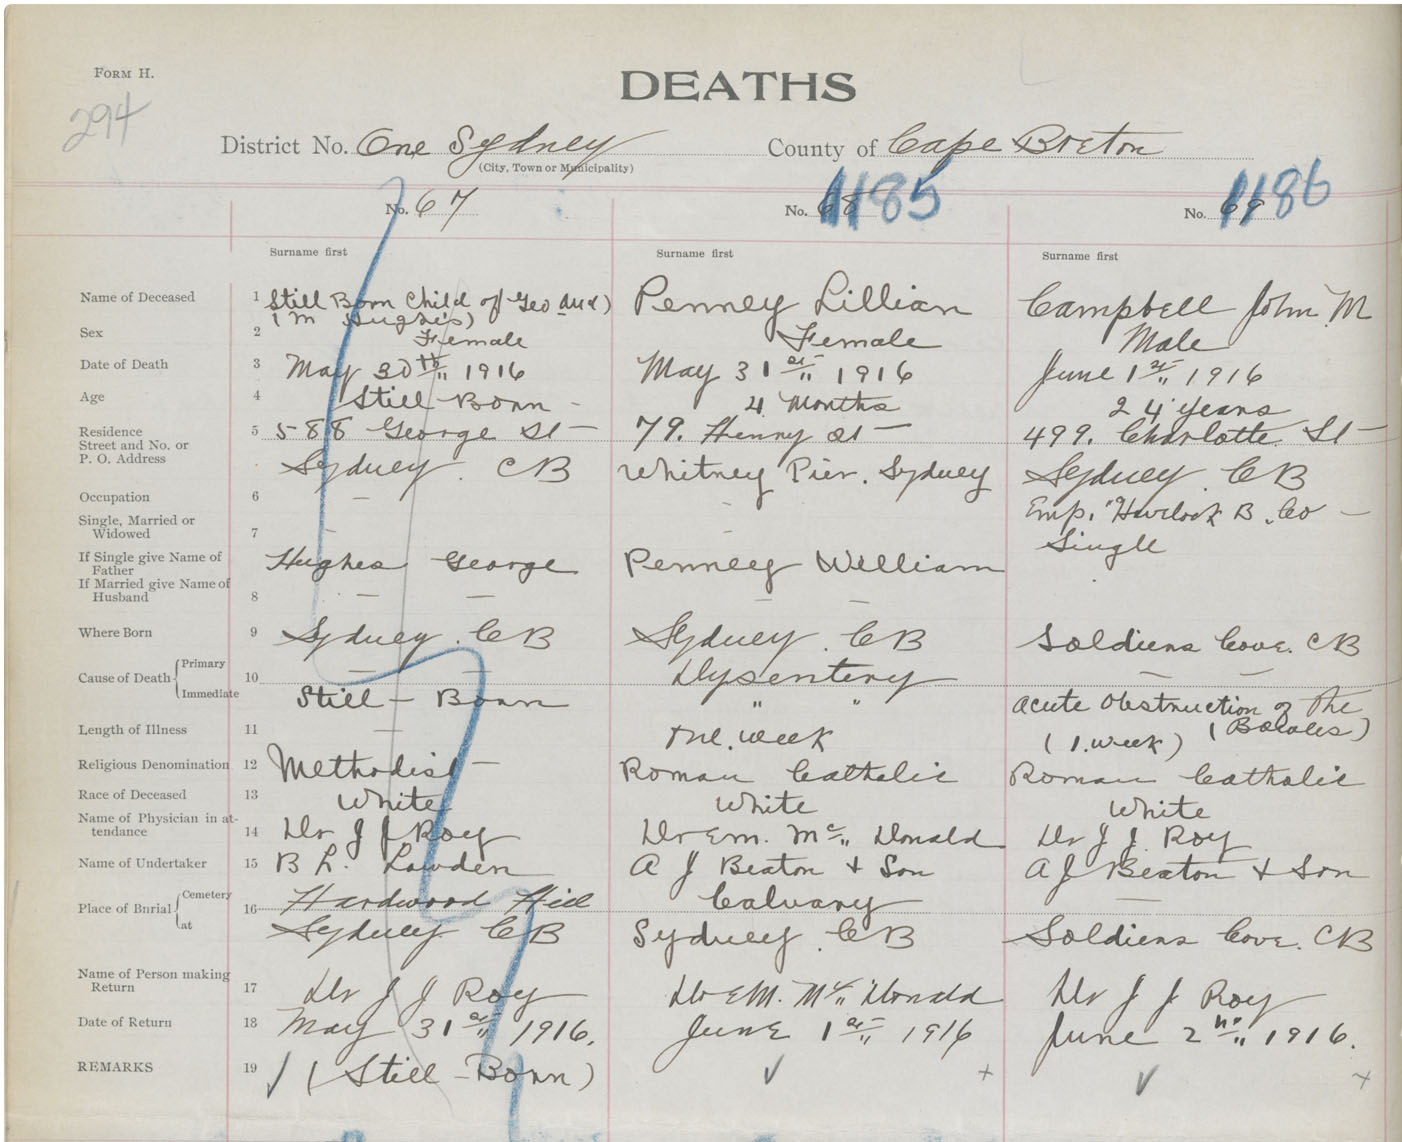 FORM H.
294
DEATHS
District No. One Sydney County of Cape Breton
(City, Town or Municipality)
No. 67 No. 68 1185 No. 69 1186
Surname first Surname first Surname first
Name of Deceased 1 Still Born Child of Geo and Penney Lillian Campbell John M
(M Hughes)
Sex 2 Female Female Male
Date of Death 3 May 30th 1916 May 31st 1916 June 1st 1916
Age 4 Still Born - 4 Months 24 years
Residence 5 588 George St 79. Henry St 499. Charlotte St
Street and No. or
P. O. Address Sydney. CB Whitney Pier. Sydney Sydney. CB
Occupation 6 — - Emp. Havelock B. Co -
Single, Married or
Widowed 7 - - Single
If Single give Name of
Father Hughes George Penney William
If Married give Name of
Husband 8 — — — —
Where Born 9 Sydney. CB Sydney. CB Soldiers Cove. CB
Cause of Death Primary 10 — — Dysentery — —
Immediate Still - Born " " Acute Obstruction of The
(Bowles)
Length of Illness 11 — One. week (1. week)
Religious Denomination 12 Methodist Roman Catholic Roman Catholic
Race of Deceased 13 White White White
Name of Physician in at-
tendance 14 Dr J J Roy Dr E M. Mc Donald Dr J J. Roy
Name of Undertaker 15 B L. Lowden A J Beaton + Son A J Beaton + Son
Place of Burial Cemetery 16 Hardwood Hill Calvary —
at Sydney CB Sydney. CB Soldiers Cove. CB
Name of Person making
Return 17 Dr J J Roy Dr E M. Mc Donald Dr J J Roy
Date of Return 18 May 31st 1916. June 1st 1916 June 2nd 1916.
REMARKS 19 ✓ (Still - Born) ✓ + ✓ +